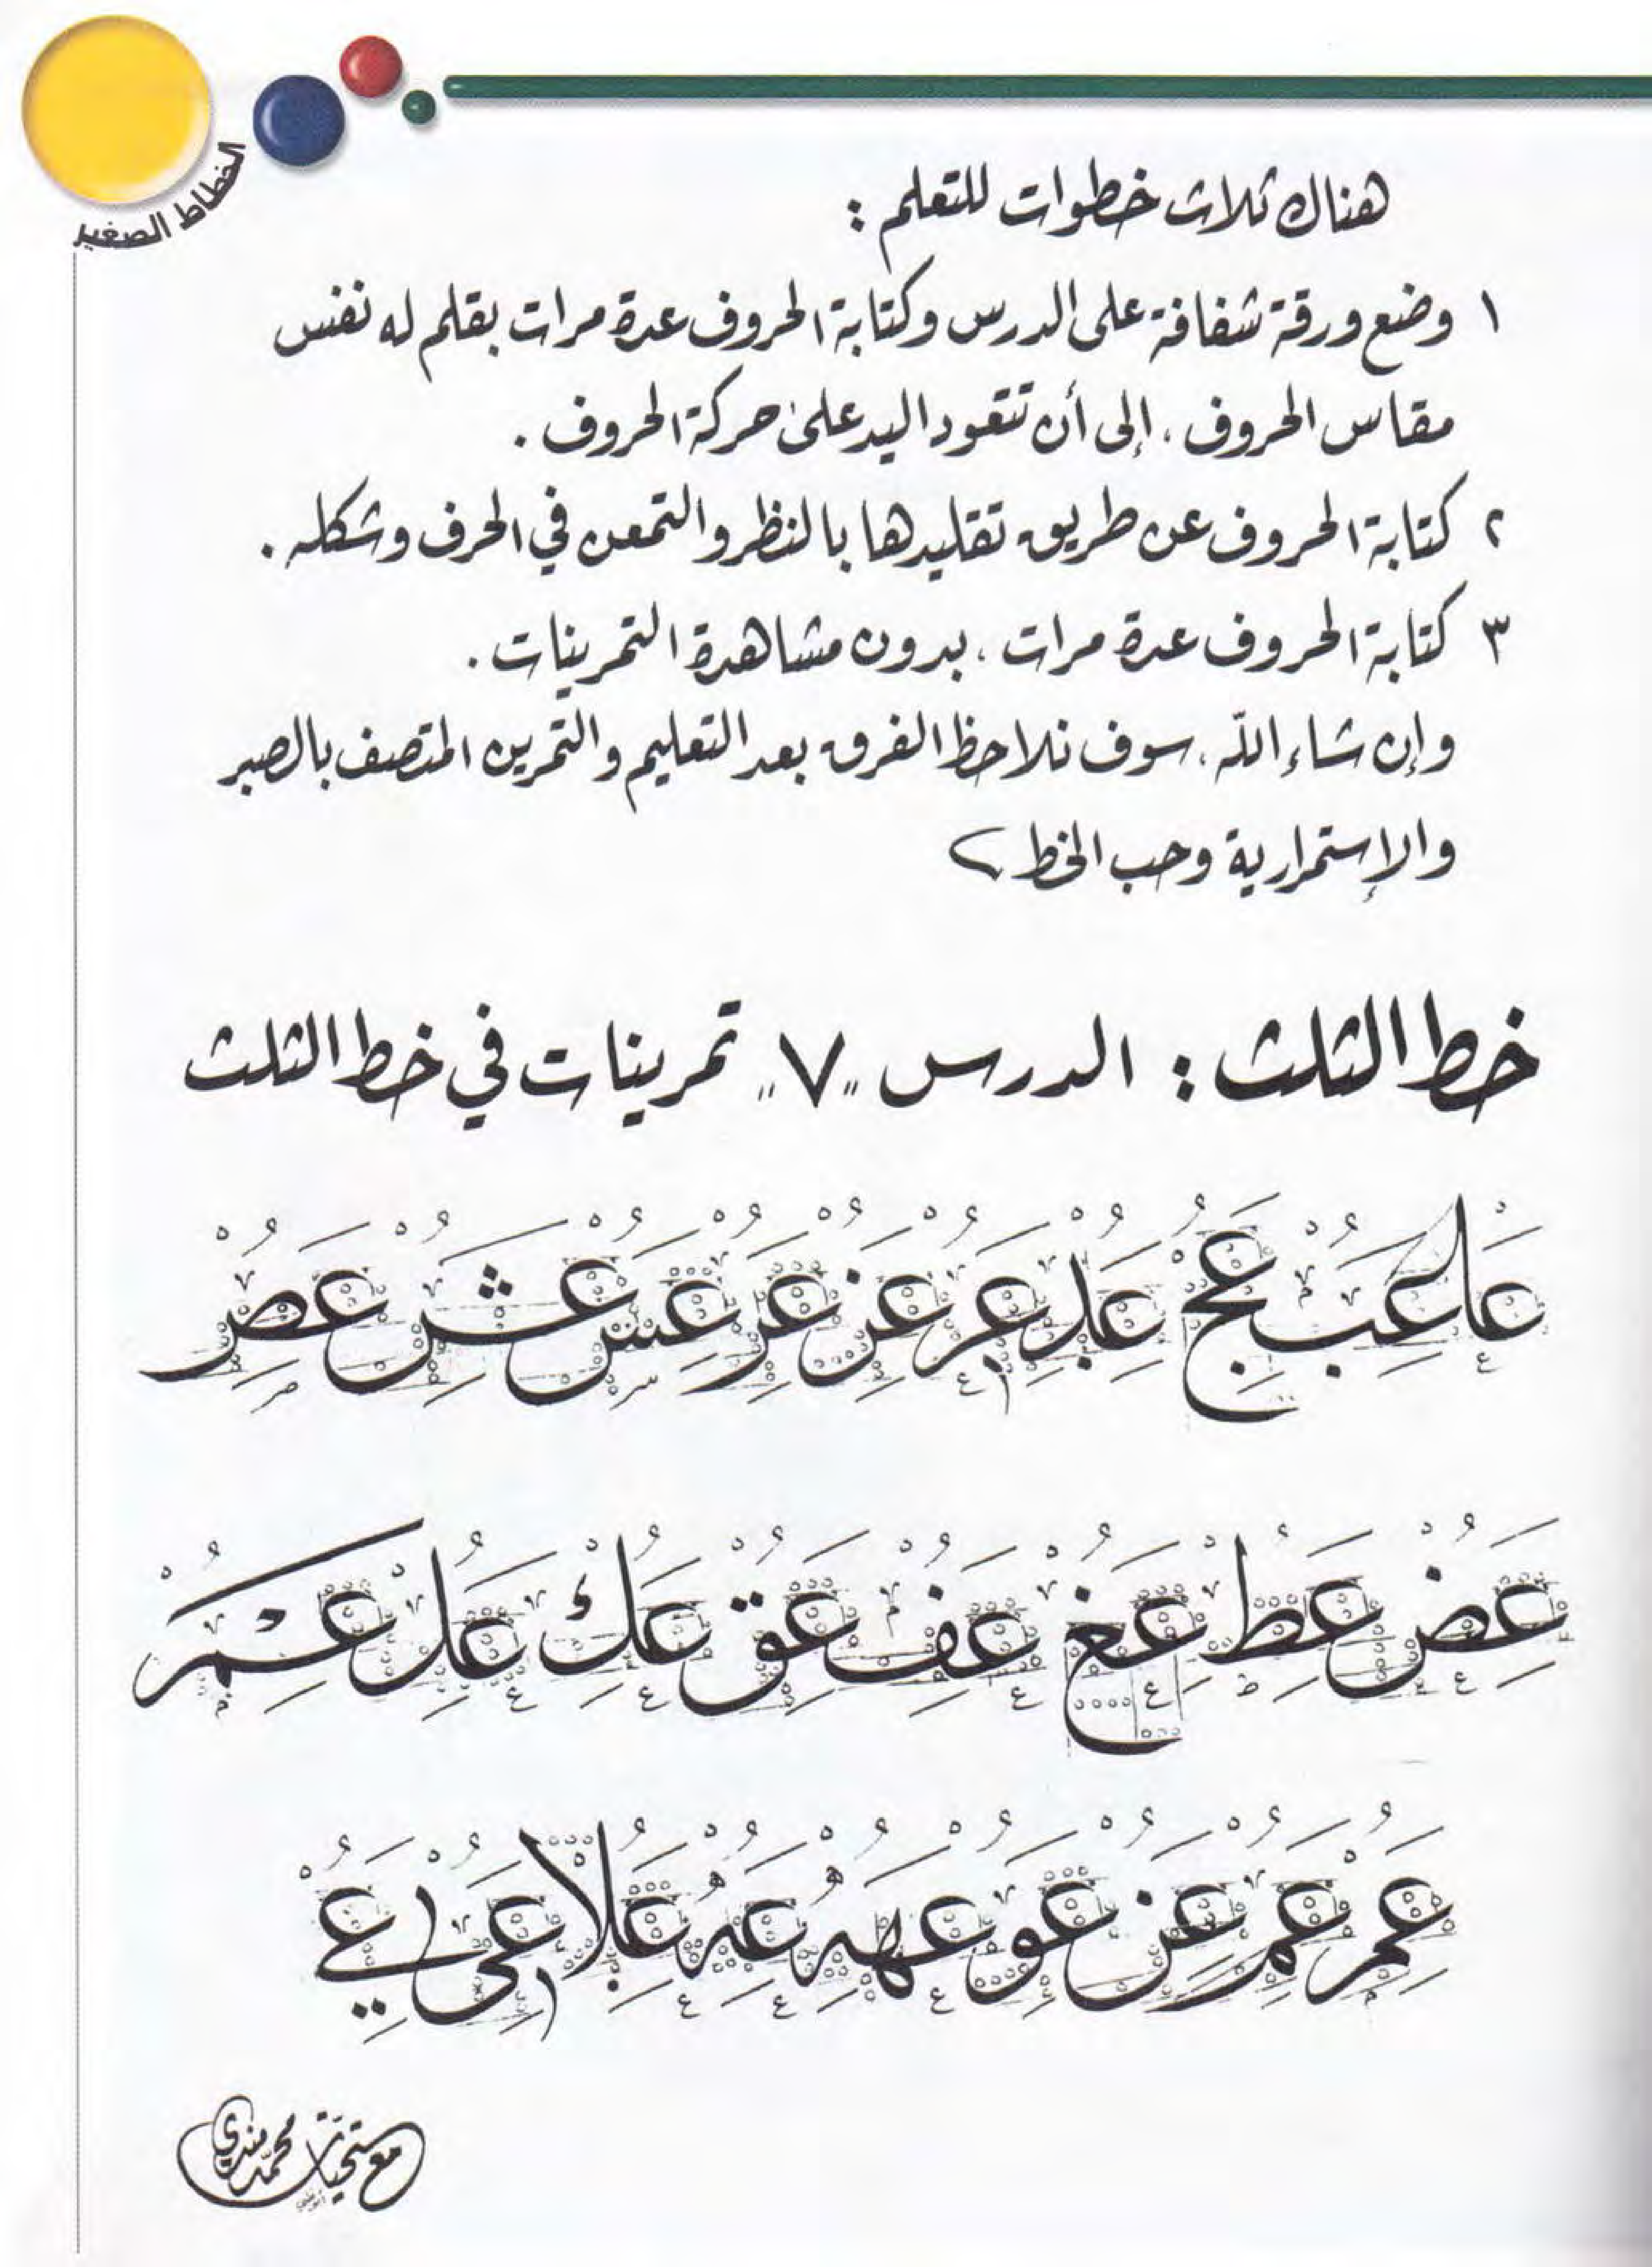 الخطاط الصغير
هناك ثلاث خطوات للتعلم :
١ وضع ورقة شفافة على الدرس وكتابة الحروف عدة مرات بقلم له نفس
مقاس الحروف ، إلى أن تتعود اليد على حركة الحروف .
٢ كتابة الحروف عن طريق تقليدها بالنظر والتمعن في الحرف وشكله .
٣ كتابة الحروف عدة مرات ، بدون مشاهدة التمرينات .
وإن شاء الله ، سوف نلاحظ الفرق بعد التعليم والتمرين المتصف بالصبر
والإستمرارية وحب الخط
خط الثلث : الدرس "٧" تمرينات في خط الثلث
عا عب عج عد عر عز عر عس عش عص
عض عط عغ عف عق عك عل عم
عم عم عن عو عهه عه علا عى عے
مع تحيات محمد مندي